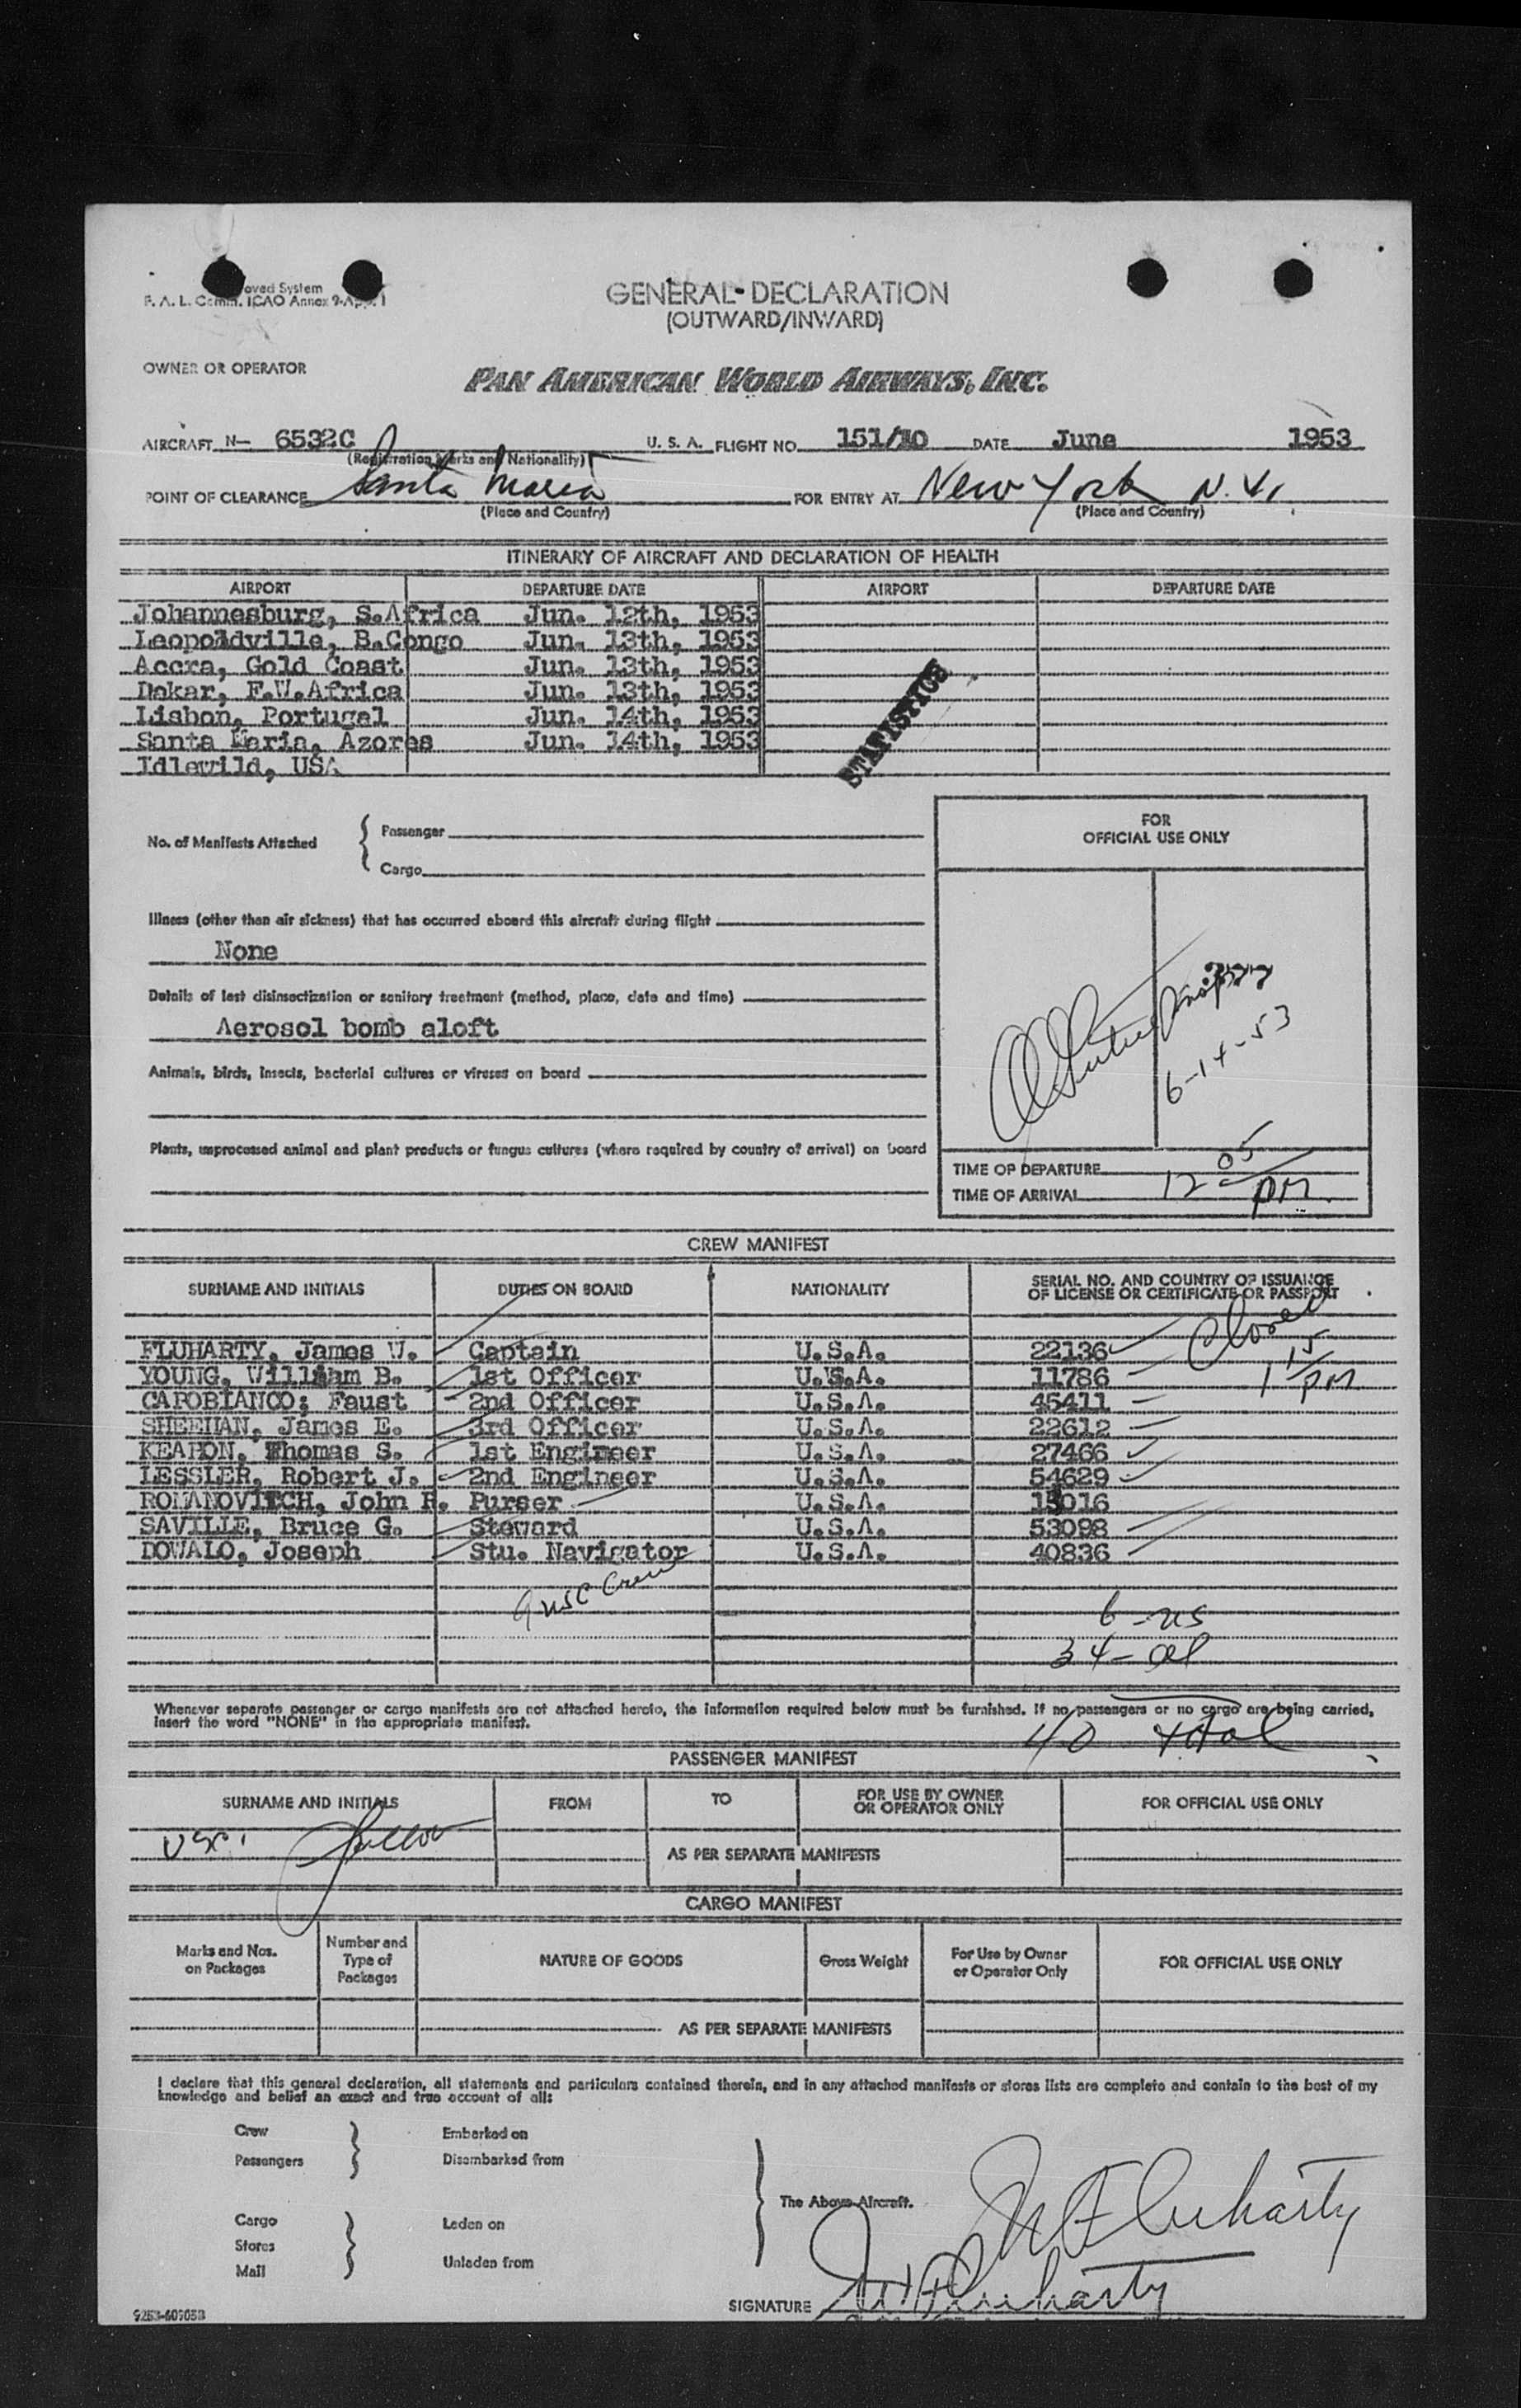 oved System
F. A. L. Comm. ICAO Annex 9-App. 1
GENERAL DECLARATION
(OUTWARD/INWARD)
OWNER OR OPERATOR
PAN AMERICAN WORLD AIRWAYS, INC.
AIRCRAFT N- 6532C U. S. A. FLIGHT NO. 151/10 DATE June 1953
(Registration Marks and Nationality)
POINT OF CLEARANCE Santa Maria FOR ENTRY AT New York N.Y.
(Place and Country) (Place and Country)
ITINERARY OF AIRCRAFT AND DECLARATION OF HEALTH
AIRPORT DEPARTURE DATE AIRPORT DEPARTURE DATE
Johannesburg, S.Africa Jun. 12th, 1953
Leopoldville, B.Congo Jun. 13th, 1953
Accra, Gold Coast Jun. 13th, 1953
Dakar, F.W.Africa Jun. 13th, 1953
Lisbon, Portugal Jun. 14th, 1953
Santa Maria, Azores Jun. 14th, 1953
Idlewild, USA
STATISTICS
No. of Manifests Attached { Passenger
Cargo
FOR
OFFICIAL USE ONLY
Illness (other than air sickness) that has occurred aboard this aircraft during flight
None
Details of last disinsectization or sanitary treatment (method, place, date and time)
Aerosol bomb aloft
6-14-53
Animals, birds, insects, bacterial cultures or viruses on board
Plants, unprocessed animal and plant products or fungus cultures (where required by country of arrival) on board
TIME OF DEPARTURE
TIME OF ARRIVAL 12 05 PM
CREW MANIFEST
SURNAME AND INITIALS DUTIES ON BOARD NATIONALITY SERIAL NO. AND COUNTRY OF ISSUANCE
OF LICENSE OR CERTIFICATE OR PASSPORT
Closed
1 15 PM
FLUHARTY, James W. Captain U.S.A. 22136
YOUNG, William B. 1st Officer U.S.A. 11786
CAPOBIANCO; Faust 2nd Officer U.S.A. 45411
SHEEHAN, James E. 3rd Officer U.S.A. 22612
KEARON, Thomas S. 1st Engineer U.S.A. 27466
LESSLER, Robert J. 2nd Engineer U.S.A. 54629
ROMANOVITCH, John R. Purser U.S.A. 13016
SAVILLE, Bruce G. Steward U.S.A. 53098
DOWALO, Joseph Stu. Navigator U.S.A. 40836
9 USC Crew
6 - US
34 - al
Whenever separate passenger or cargo manifests are not attached hereto, the information required below must be furnished. If no passengers or no cargo are being carried,
insert the word "NONE" in the appropriate manifest.
40 total
PASSENGER MANIFEST
SURNAME AND INITIALS FROM TO FOR USE BY OWNER
OR OPERATOR ONLY FOR OFFICIAL USE ONLY
USPI
AS PER SEPARATE MANIFESTS
CARGO MANIFEST
Marks and Nos.
on Packages Number and
Type of
Packages NATURE OF GOODS Gross Weight For Use by Owner
or Operator Only FOR OFFICIAL USE ONLY
AS PER SEPARATE MANIFESTS
I declare that this general declaration, all statements and particulars contained therein, and in any attached manifests or stores lists are complete and contain to the best of my
knowledge and belief an exact and true account of all:
Crew Embarked on
Passengers Disembarked from
The Above Aircraft.
Cargo Laden on
Stores
Mail Unladen from
JW Fluharty
SIGNATURE JW Fluharty
9253-60905B